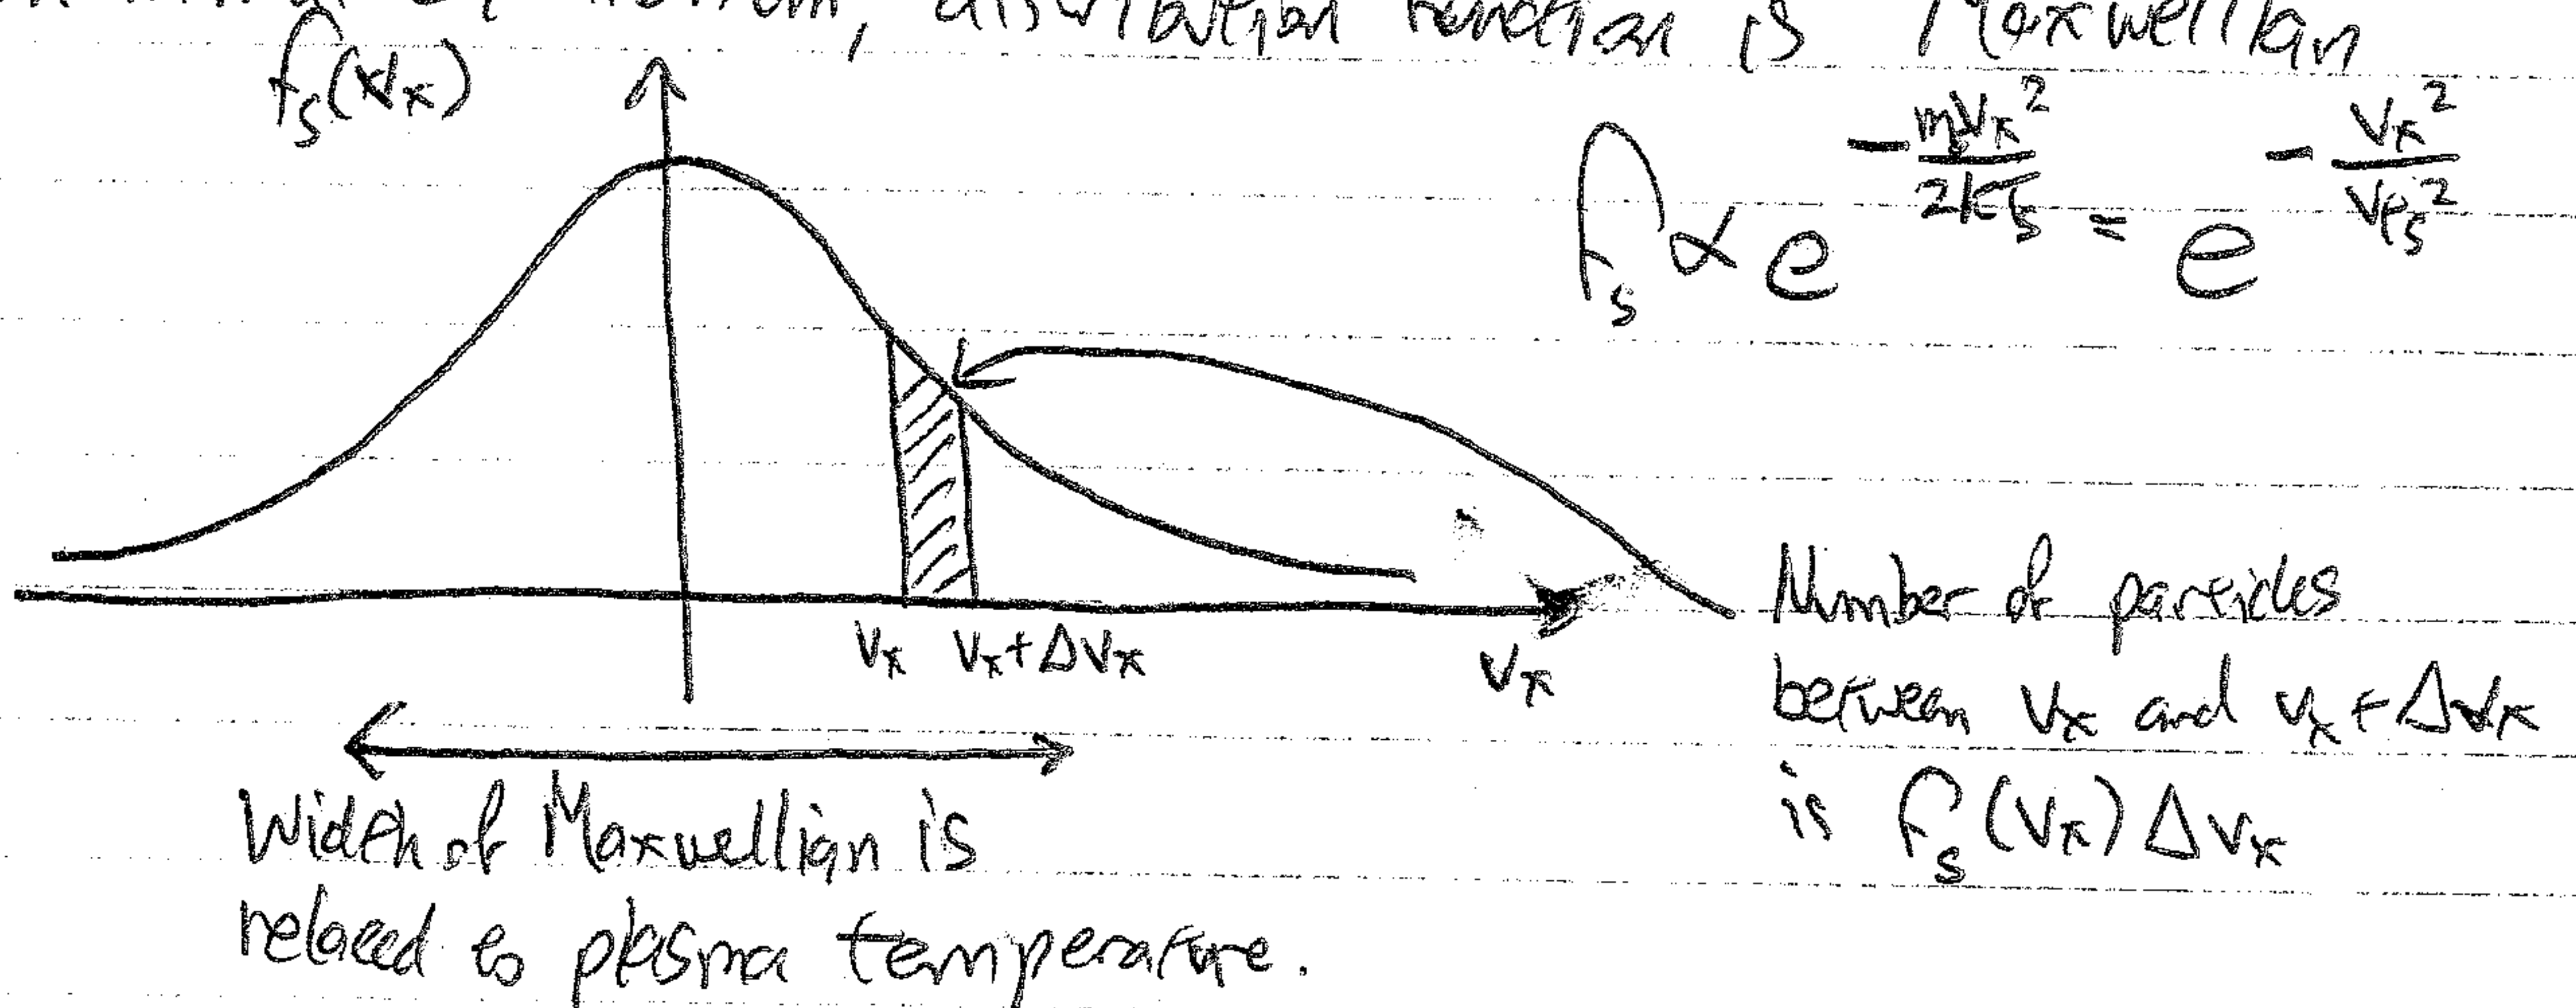 distribution function is Maxwellian
f_s(v_x)
f_s ∝ e^{-\frac{m v_x^2}{2kT_s}} = e^{-\frac{v_x^2}{v_{ts}^2}}
v_x v_x+Δv_x
v_x
Number of particles
between v_x and v_x + Δv_x
is f_s(v_x)Δv_x
Width of Maxwellian is
related to plasma temperature.